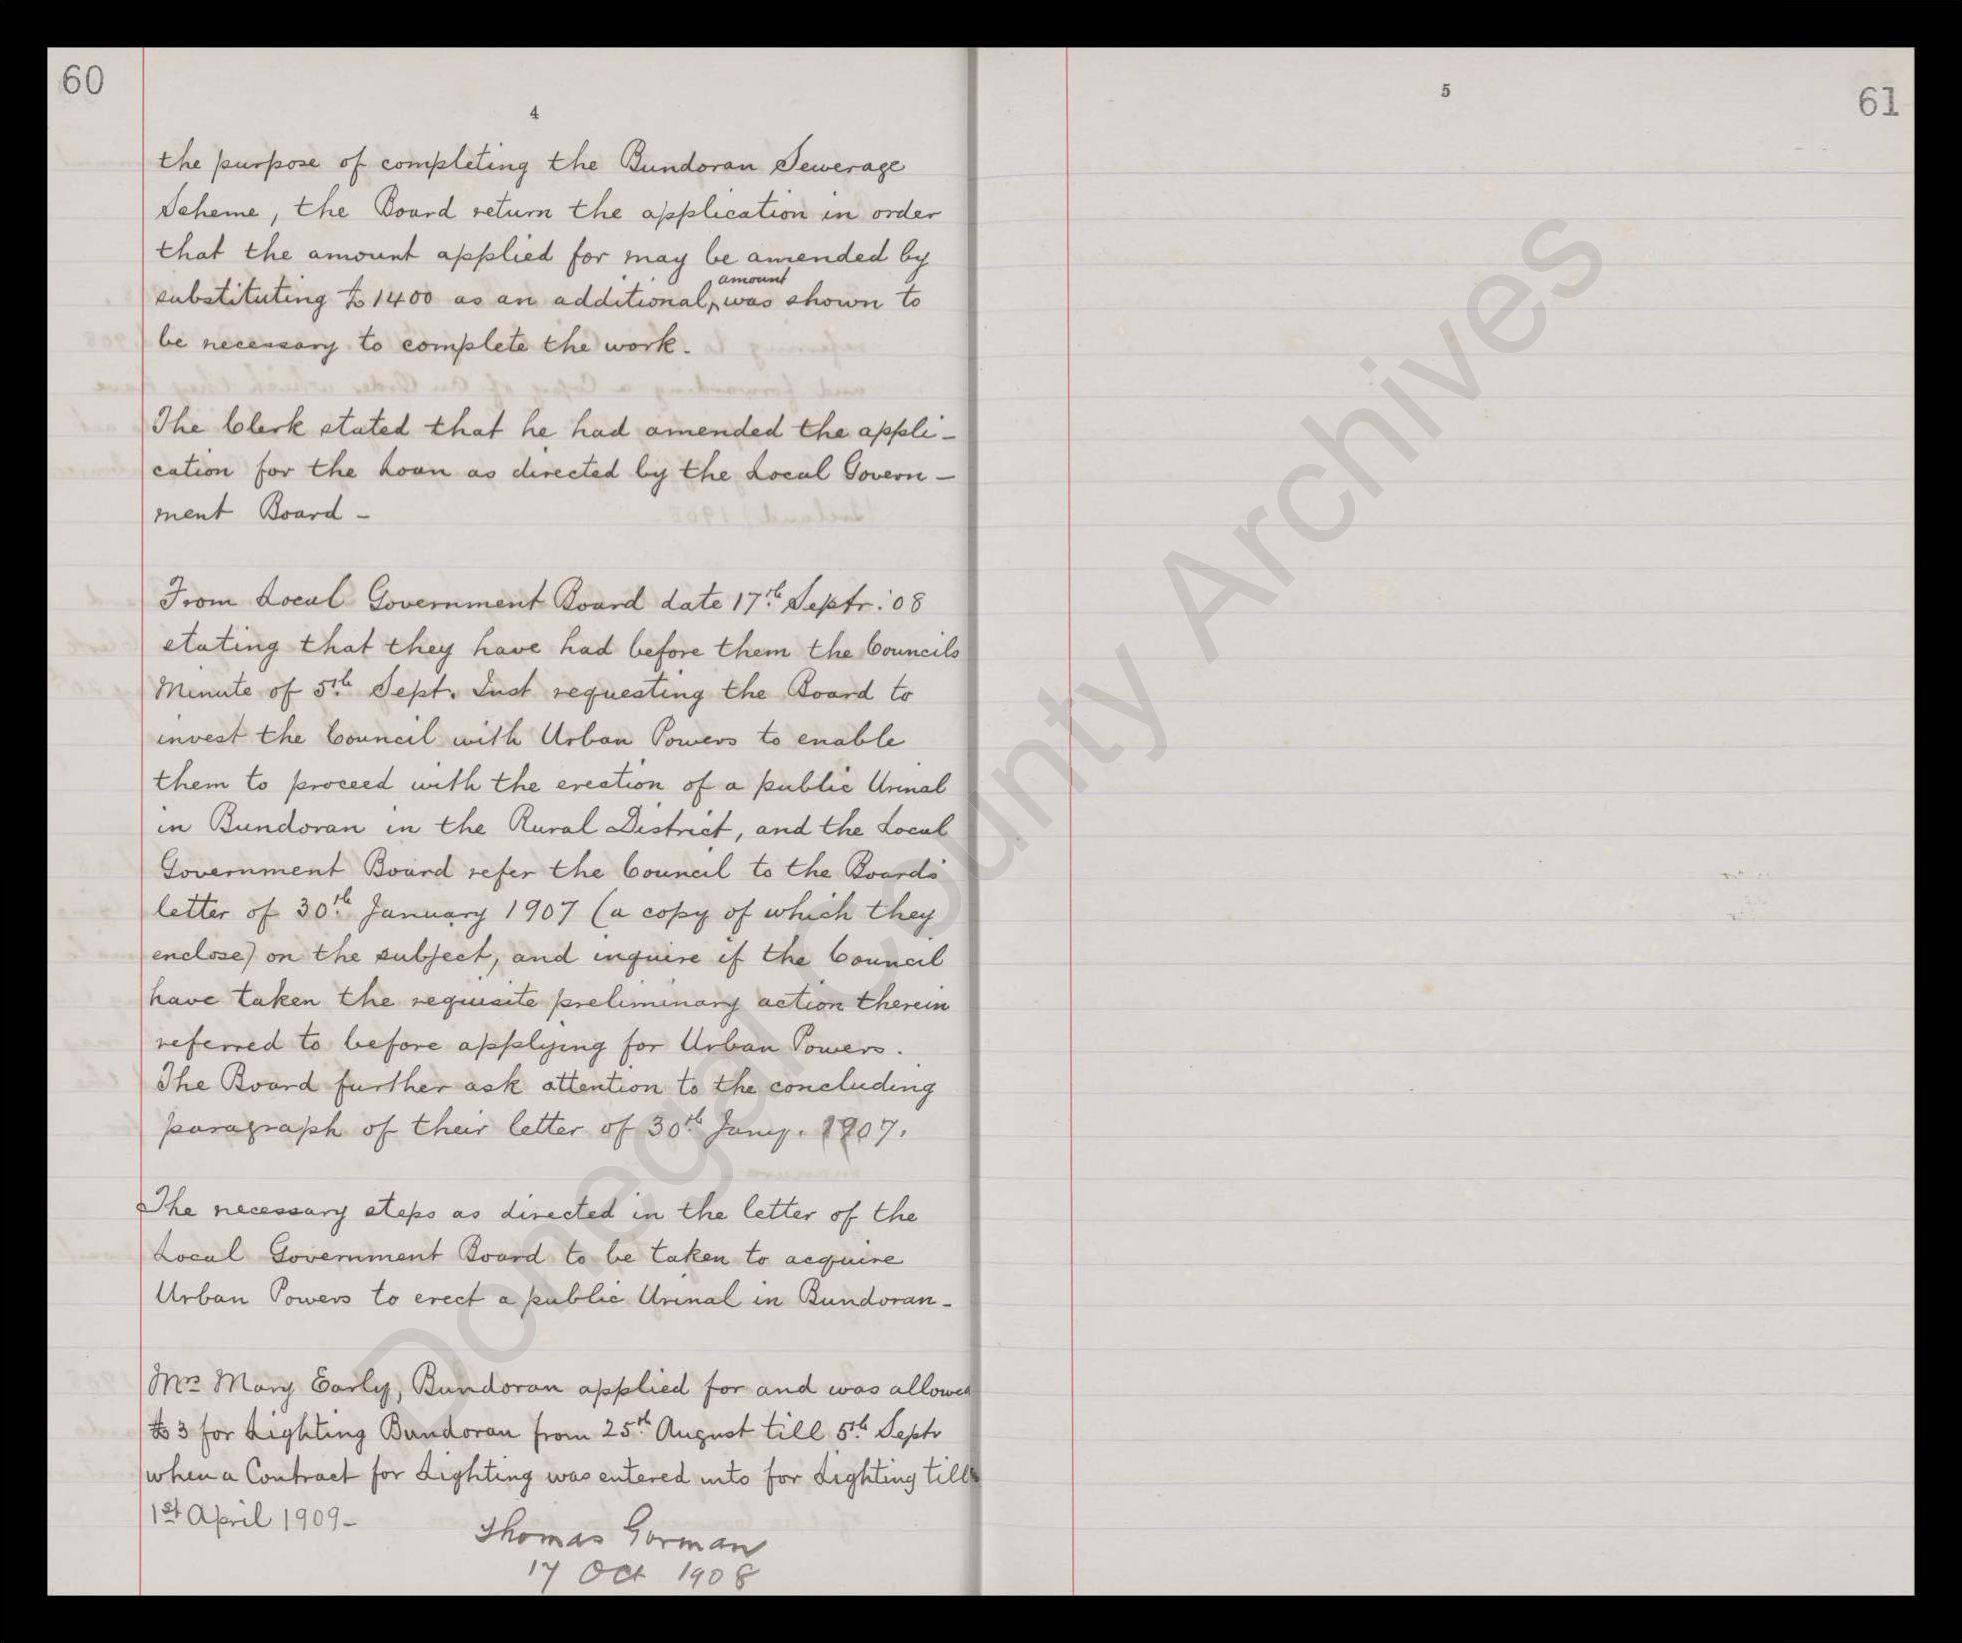 60
4
the purpose of completing the Bundoran Sewerage
Scheme, the Board return the application in order
that the amount applied for may be amended by
amount
substituting £1400 as an additional ‸ was shown to
be necessary to complete the work.
The Clerk stated that he had amended the appli-
cation for the Loan as directed by the Local Govern-
ment Board -
From Local Government Board date 17th Septr: 08
stating that they have had before them the Councils
Minute of 5th Sept. Inst requesting the Board to
invest the Council with Urban Powers to enable
them to proceed with the erection of a public Urinal
in Bundoran in the Rural District, and the Local
Government Board refer the Council to the Board's
letter of 30th January 1907 (a copy of which they
enclose) on the subject, and inquire if the Council
have taken the requisite preliminary action therein
referred to before applying for Urban Powers.
The Board further ask attention to the concluding
paragraph of their letter of 30th Jany. 1907.
The necessary steps as directed in the letter of the
Local Government Board to be taken to acquire
Urban Powers to erect a public Urinal in Bundoran-
Mrs Mary Early, Bundoran applied for and was allowed
£3 for Lighting Bundoran from 25th August till 5th Septr
when a Contract for Lighting was entered into for Lighting till
1st April 1909-
Thomas Gorman
17 Oct 1908
5
61
Donegal County Archives